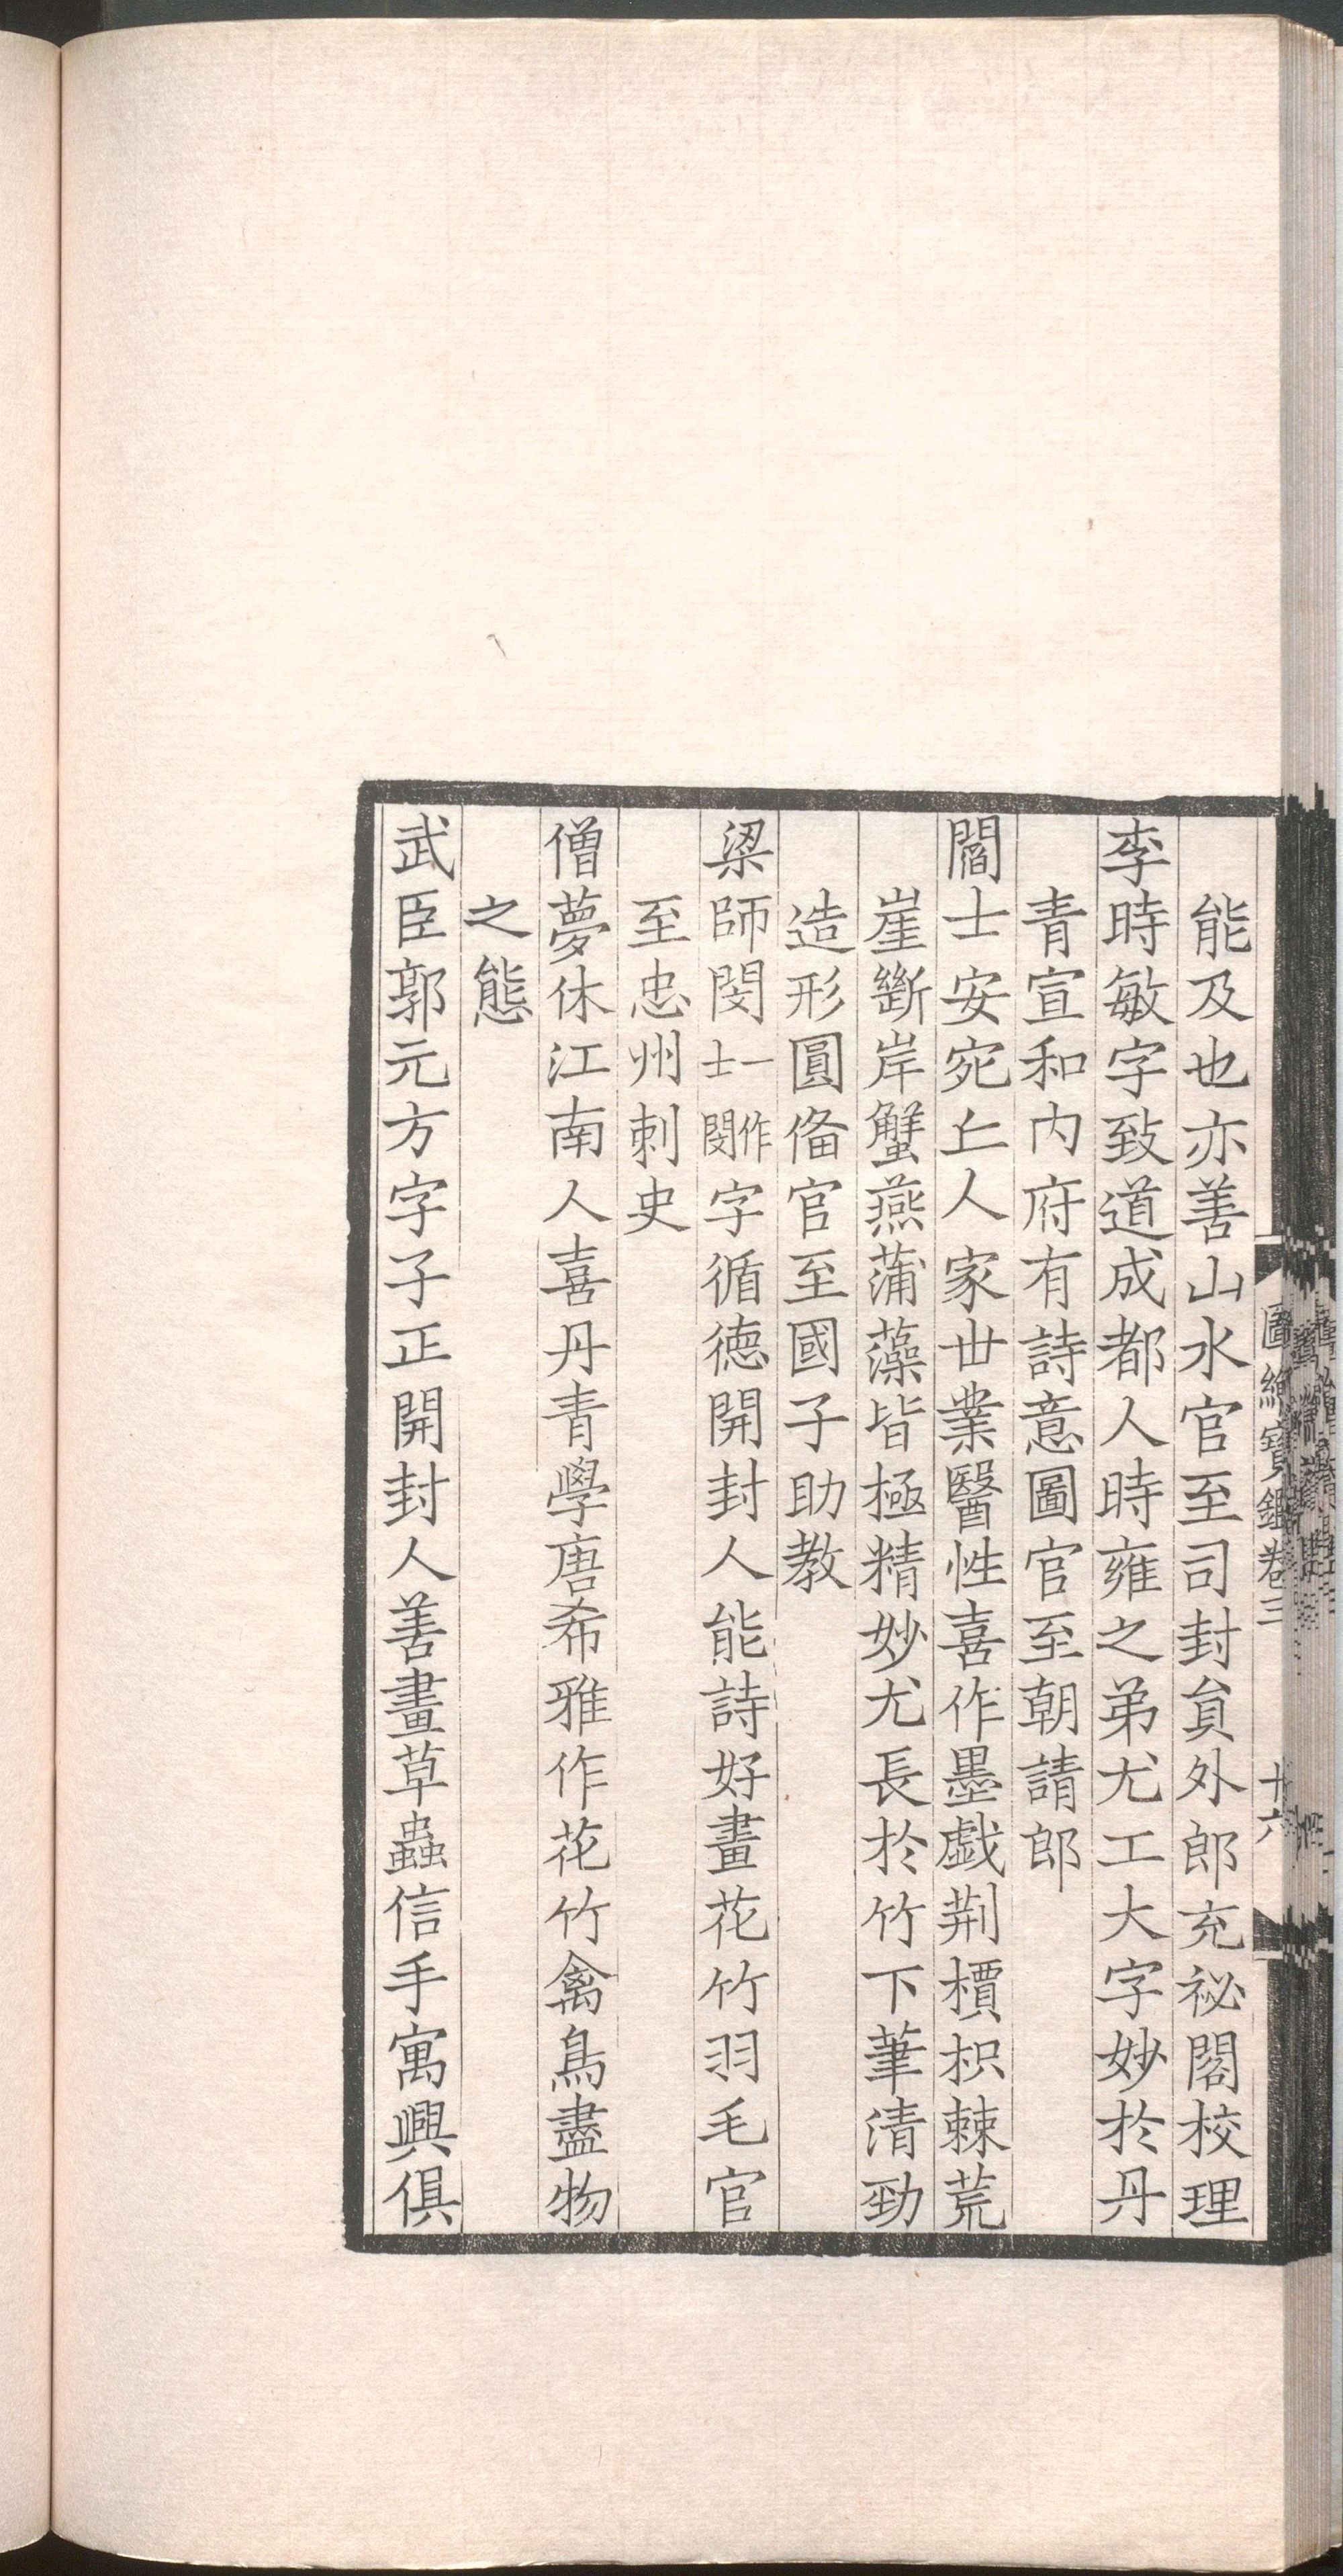 能及也亦善山水官至司封貟外郎充祕閣校理
李時敏字致道成都人時雍之弟尤工大字妙於丹
青宣和内府有詩意圖官至朝請郎
閻士安宛丘人家世業醫性喜作墨戯荆檟枳棘荒
崖斷岸蟹燕蒲藻皆極精妙尤長於竹下筆清勁
造形圓俻官至國子助教
梁師閔一作士閔字循德開封人能詩好畫花竹羽毛官
至忠州刺史
僧夢休江南人喜丹青學唐希雅作花竹禽鳥盡物
之態
武臣郭元方字子正開封人善畫草蟲信手寓興俱
圖繪寶鑑卷三
十六